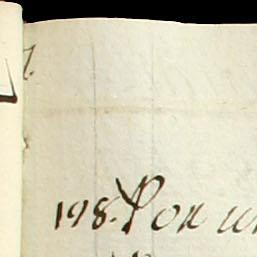 198. Por un